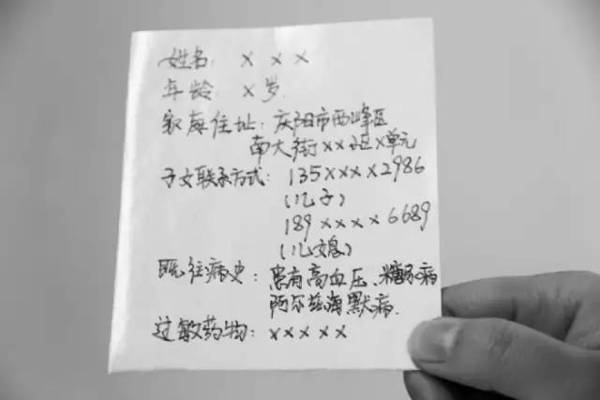 姓名: × × ×
年龄 ×岁
家庭住址: 庆阳市西峰区
南大街××小区×单元
子女联系方式: 135××××2986
(儿子)
189××××6689
(儿媳)
既往病史: 患有高血压、糖尿病
阿尔兹海默病.
过敏药物: ×××××